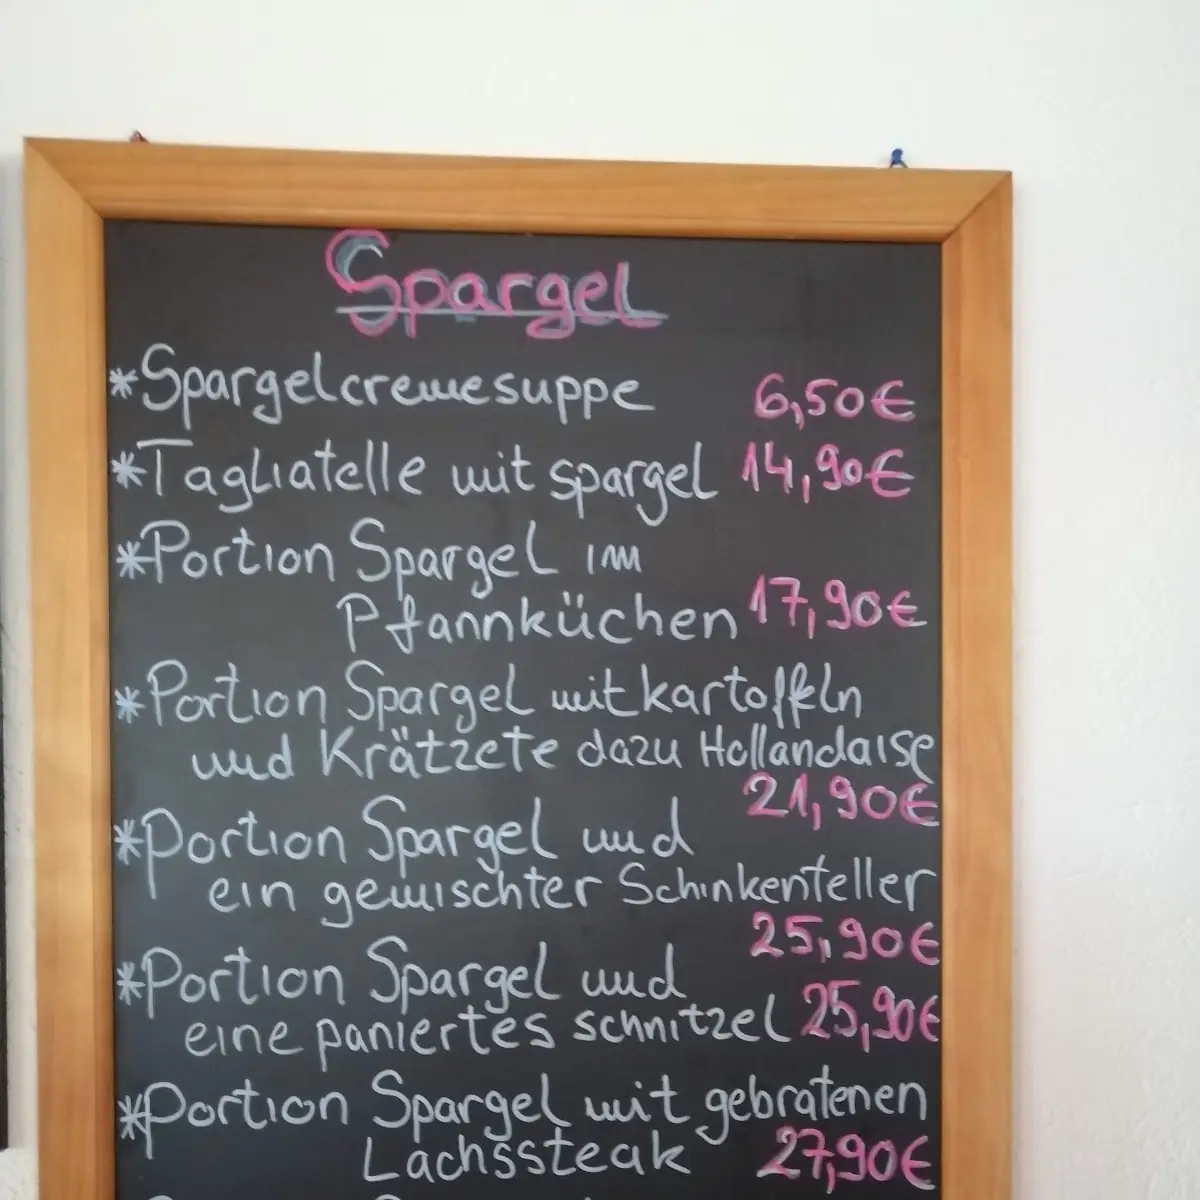 Spargel
*Spargelcremesuppe 6,50€
*Tagliatelle mit spargel 14,90€
*Portion Spargel im
Pfannküchen 17,90€
*Portion Spargel mit kartoffeln
und Krätzete dazu Hollandaise
21,90€
*Portion Spargel und
ein gemischter Schinkenteller
25,90€
*Portion Spargel und
eine paniertes schnitzel 25,90€
*Portion Spargel mit gebratenen
Lachssteak 27,90€